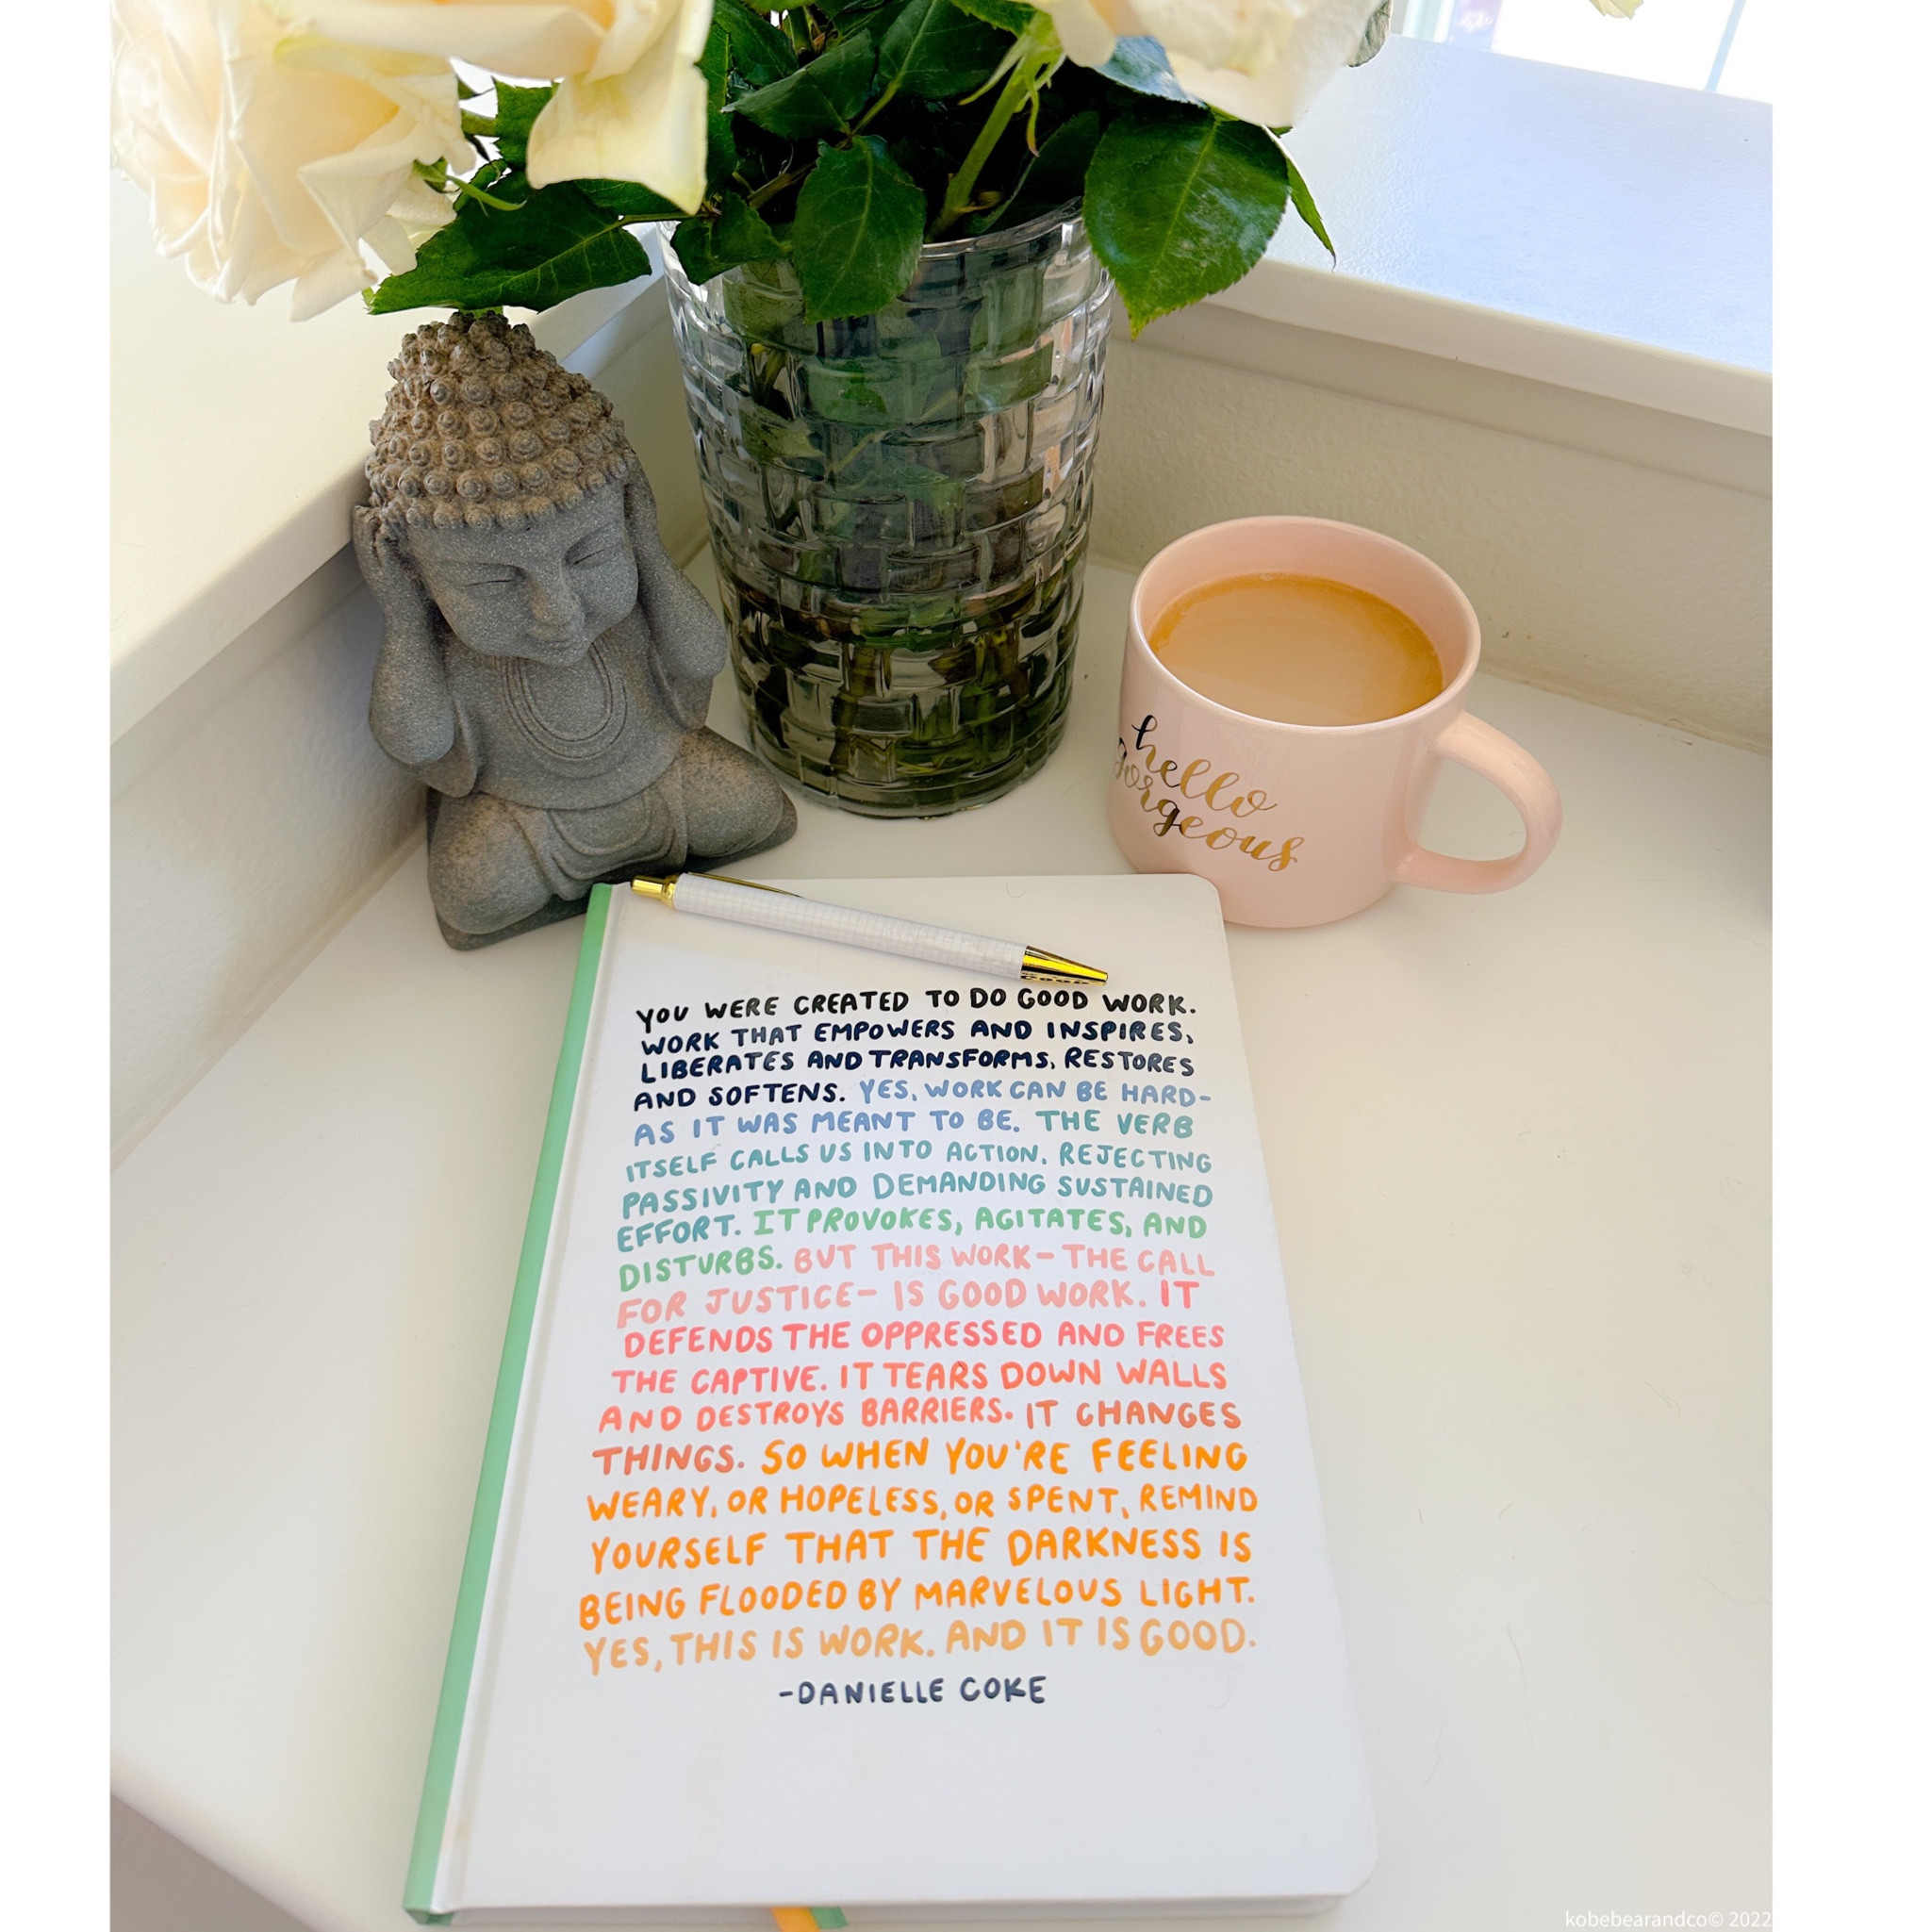 hello
gorgeous
YOU WERE CREATED TO DO GOOD WORK.
WORK THAT EMPOWERS AND INSPIRES,
LIBERATES AND TRANSFORMS, RESTORES
AND SOFTENS. YES, WORK CAN BE HARD-
AS IT WAS MEANT TO BE. THE VERB
ITSELF CALLS US INTO ACTION, REJECTING
PASSIVITY AND DEMANDING SUSTAINED
EFFORT. IT PROVOKES, AGITATES, AND
DISTURBS. BUT THIS WORK- THE CALL
FOR JUSTICE- IS GOOD WORK. IT
DEFENDS THE OPPRESSED AND FREES
THE CAPTIVE. IT TEARS DOWN WALLS
AND DESTROYS BARRIERS. IT CHANGES
THINGS. SO WHEN YOU'RE FEELING
WEARY, OR HOPELESS, OR SPENT, REMIND
YOURSELF THAT THE DARKNESS IS
BEING FLOODED BY MARVELOUS LIGHT.
YES, THIS IS WORK. AND IT IS GOOD.
-DANIELLE COKE
kobebearandco© 2022